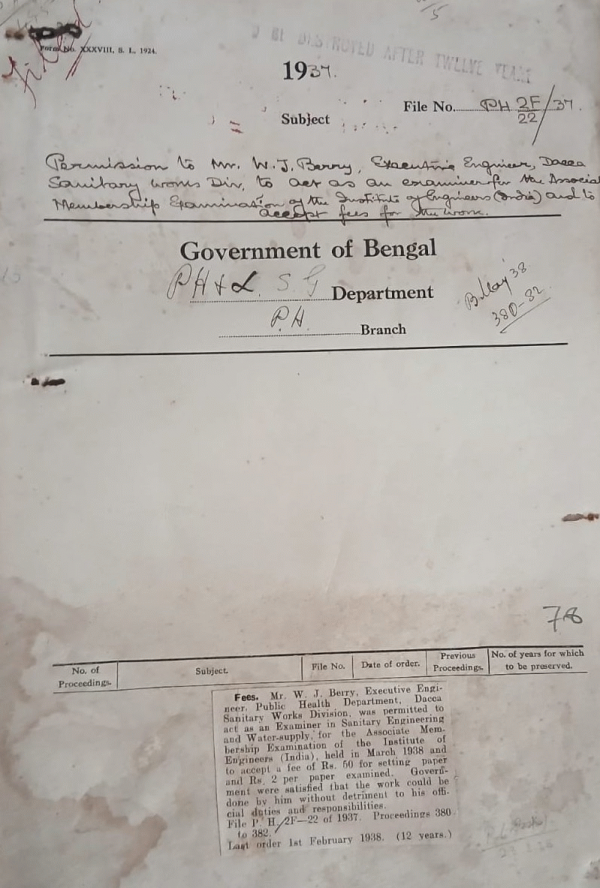 5
TO BE DESTROYED AFTER TWELVE YEARS
Form No. XXXVIII, B. L. 1924.
Filed
1937.
File No. PH 2F/22/37.
Subject
Permission to Mr. W. J. Berry, Executive Engineer, Dacca
Sanitary works Div, to act as an examiner for the Associate
Membership Examination of the Institute of Engineers (India) and to
accept fees for the work.
Government of Bengal
PH & L. S. G Department
P.H. Branch
B. May 38
380-82
78
No. of Proceedings. Subject. File No. Date of order. Previous Proceedings. No. of years for which to be preserved.
Fees. Mr. W. J. Berry, Executive Engi-
neer, Public Health Department, Dacca
Sanitary Works Division, was permitted to
act as an Examiner in Sanitary Engineering
and Water-supply, for the Associate Mem-
bership Examination of the Institute of
Engineers (India), held in March 1938 and
to accept a fee of Rs. 50 for setting paper
and Rs. 2 per paper examined. Govern-
ment were satisfied that the work could be
done by him without detriment to his offi-
cial duties and responsibilities.
File P. H. 2F—22 of 1937. Proceedings 380
to 382.
Last order 1st February 1938. (12 years.)